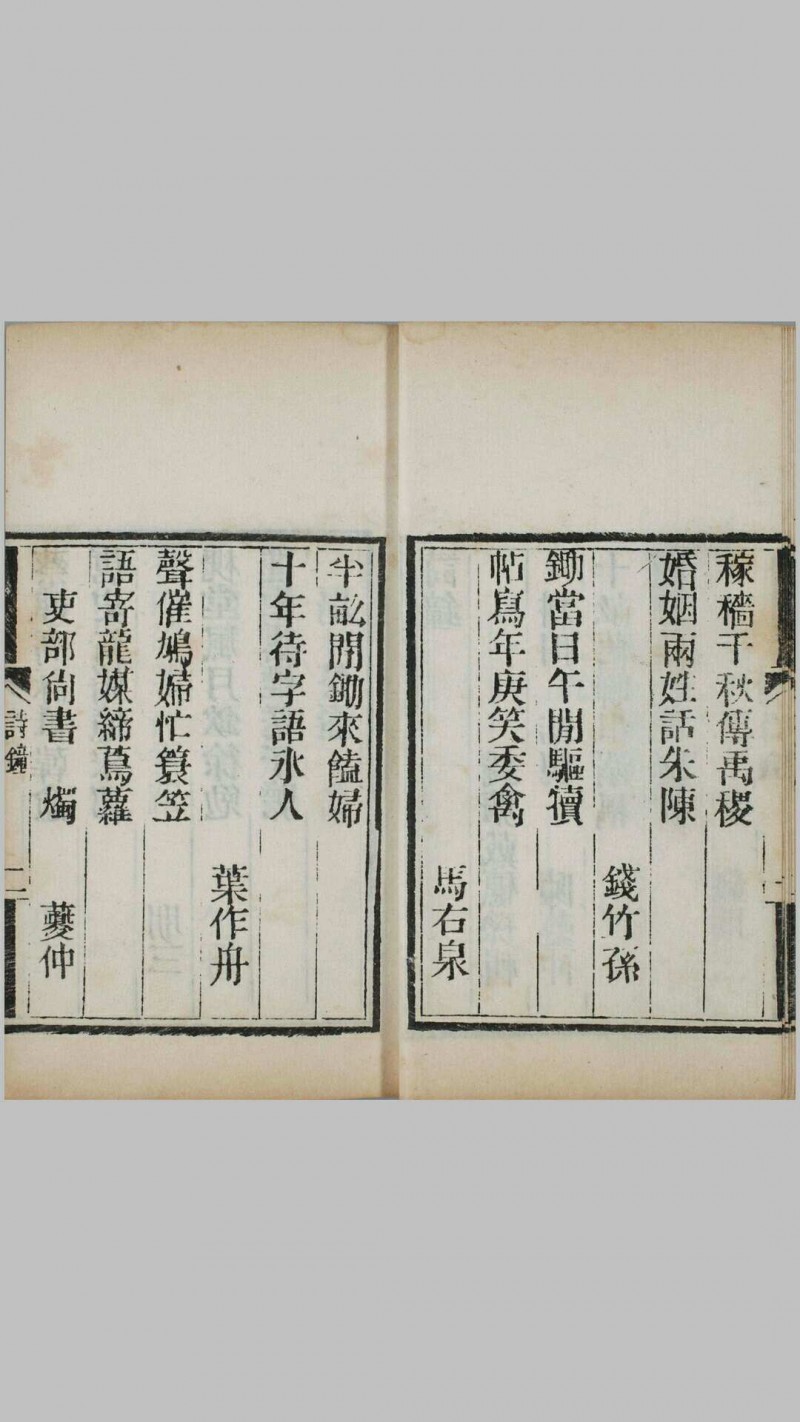 稼穡千秋傳禹稷
婚姻兩姓話朱陳
錢竹孫
鋤當日午閒驅犢
帖寫年庚笑委禽
馬右泉
半畝閒鋤來饁婦
十年待字語氷人
葉作舟
聲催鳩婦忙簑笠
語寄龍媒締蔦蘿
吏部尙書 燭 夔仲
詩鐘 二